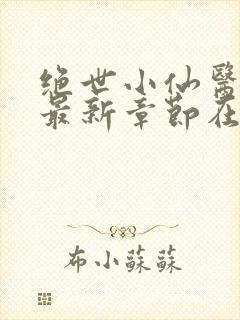 绝世小仙醫
最新章節在
布小蘇蘇